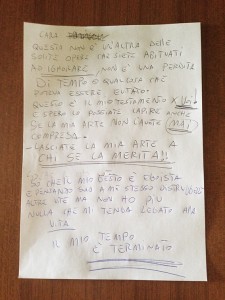 CARA
QUESTO NON E' UN'ALTRA DELLE
SOLITE OPERE CHE SIETE ABITUATI
AD IGNORARE, NON E' UNA PERDITA
DI TEMPO O QUALCOSA CHE
POTEVA ESSERE EVITATO.
QUESTO E' IL MIO TESTAMENTO X
E SPERO LO POSSIATE CAPIRE ANCHE
SE LA MIA ARTE NON L'AVETE (MAI)
COMPRESA.
- LASCIATE LA MIA ARTE A
CHI SE LA MERITA!!
SO CHE IL MIO GESTO È EGOISTA
E PENSANDO SOLO A ME STESSO DISTRUGGERÒ
ALTRE VITE MA NON HO PIÙ
NULLA CHE MI TENGA LEGATO ALLA
VITA
IL MIO TEMPO
È TERMINATO